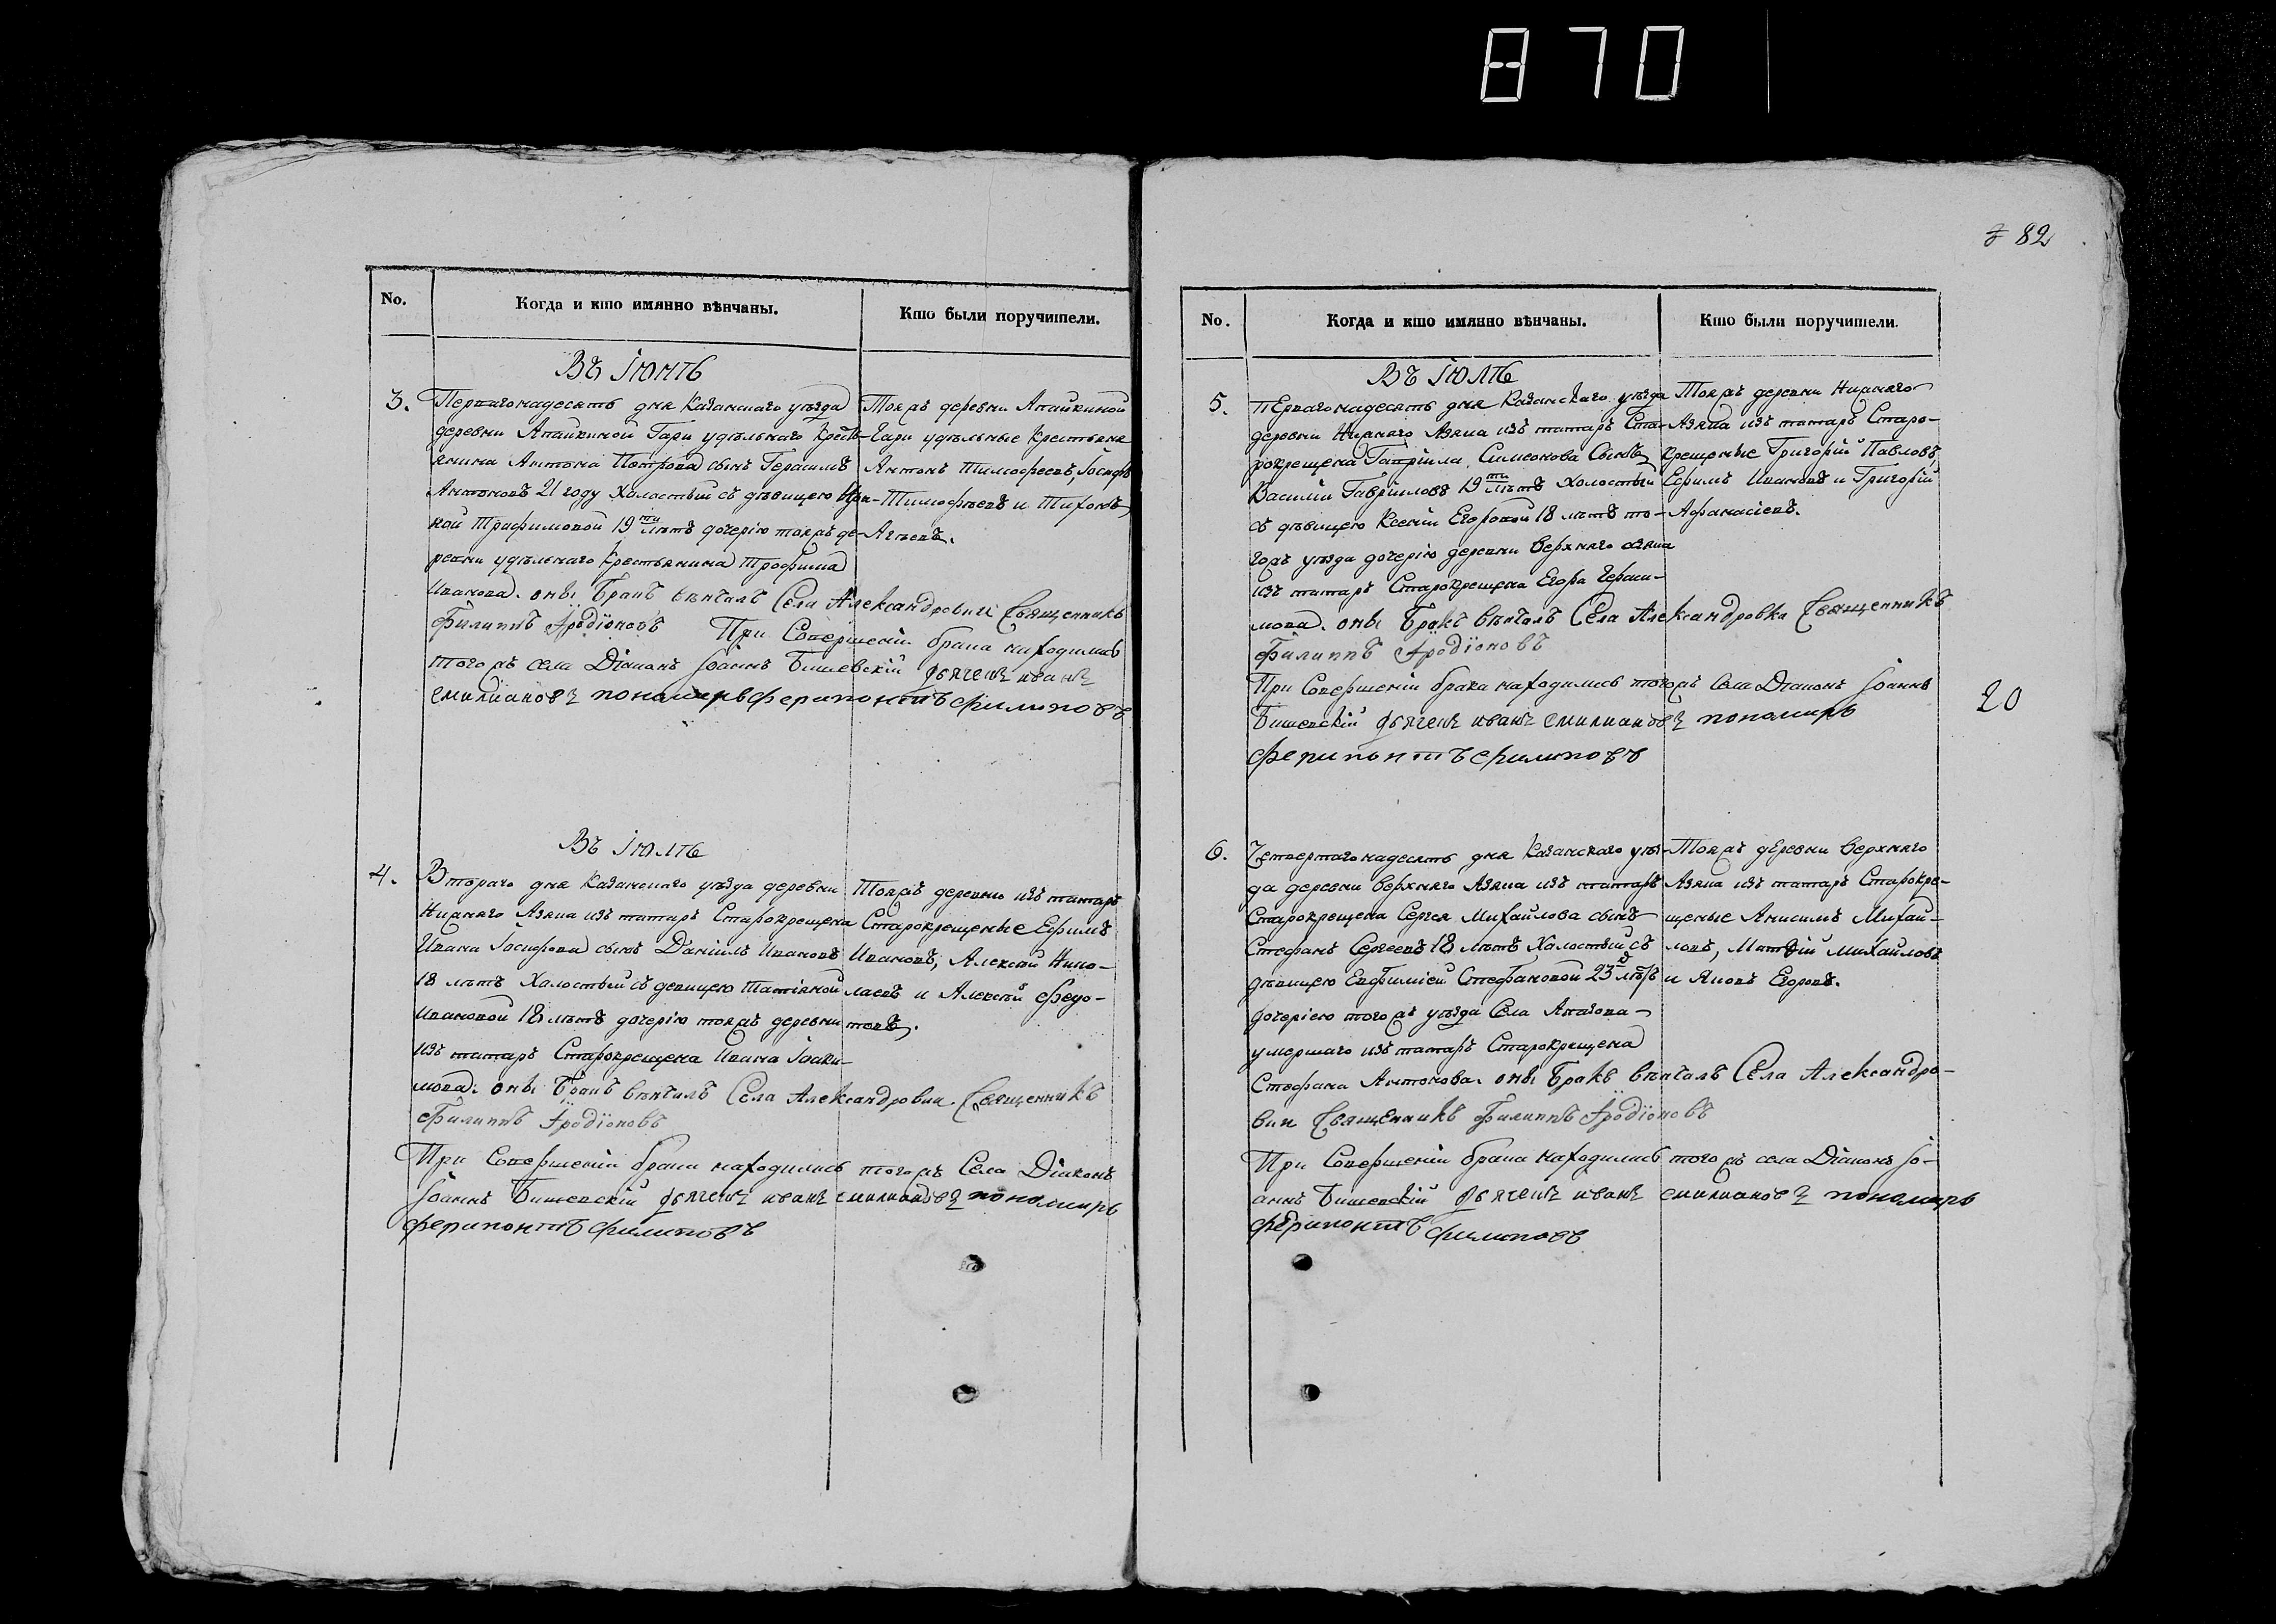 870
82
No.
Когда и кто имянно вѣнчаны.
Кто были поручители.
Въ Іюнѣ
3.
Перваго надесять дня Казанскаго уѣзда
деревни Апайкиной Гари удѣльнаго Кресть-
янина Антона Петрова сынъ Герасимъ
Антоновъ 21 году Холостый съ дѣвицею Ири-
ной Трифимовой 19 ти лѣтъ дочерію тояжъ де-
ревни удѣльнаго Крестьянина Трофима
Иванова. оны Бракъ вѣнчалъ Села Александровки Священникъ
Филиппъ Їродїоновъ При Совершеніи брака находились
того жъ села Діаконъ Іоаннъ Бишевскій дьячекъ иванъ
емилиановъ пономирь ферипонтъ филиповъ
Тояжъ деревни Апайкиной
Гари удѣльные Крестьяне
Антонъ Тимофеевъ, Іосифъ
Тимофѣевъ и Тихонъ
Агѣевъ.
Въ Іюлѣ
4.
Втораго дня Казанскаго уѣзда деревни
Нижняго Азяка изъ татаръ Старокрещена
Ивана Іосифова сынъ Даніилъ Ивановъ
18 лѣтъ Холостый съ девицею Татіяной
Ивановой 18 лѣтъ дочерію тояжъ деревни
изъ татаръ Старокрещена Ивана Іоаки-
мова. оны Бракъ вѣнчалъ Села Александровки Священникъ
Филиппъ Їродїоновъ
При Совершеніи брака находились того жъ Села Діаконъ
Іоаннъ Бишевскій дьячекъ иванъ емилиановъ пономирь
ферипонтъ филиповъ
Тояжъ деревни изъ татаръ
Старокрещеные Ефимъ
Ивановъ, Алексѣй Нико-
лаевъ и Алексѣй Федо-
товъ.
No.
Когда и кто имянно вѣнчаны.
Кто были поручители.
Въ Іюлѣ
5.
Перваго надесять дня Казанскаго уѣзда
деревни Нижняго Азяка изъ татаръ Ста-
рокрещена Гавріила Симеонова Сынъ
Василій Гавріиловъ 19 ти лѣтъ Холостый
съ дѣвицею Ксеніи Егоровой 18 лѣтъ то-
гожъ уѣзда дочерію деревни Верхняго Азяка
изъ татаръ Старокрещена Егора Гераси-
мова. оны Бракъ вѣнчалъ Села Александровки Священникъ
Филиппъ Їродїоновъ
При Совершеніи брака находились тогожъ Села Діаконъ Іоаннъ
Бишевскій дьячекъ иванъ емилиановъ пономирь
ферипонтъ филиповъ
Тояжъ деревни Нижняго
Азяка изъ татаръ Старо-
крещеные Григорій Павловъ,
Ефимъ Ивановъ и Григорій
Афанасіевъ.
20
6.
Четвертаго надесять дня Казанскаго уѣз-
да деревни Верхняго Азяка изъ татаръ
Старокрещена Сергея Михайлова сынъ
Стефанъ Сергеевъ 18 лѣтъ Холостый съ
дѣвицею Евфиміей Стефановой 23 лѣтъ
дочеріею того жъ уѣзда Села Апазова
умершаго изъ татаръ Старокрещена
Стефана Антонова. оны Бракъ вѣнчалъ Села Александро-
вки Священникъ Филиппъ Їродїоновъ
При Совершеніи брака находились того жъ села Діаконъ Іо-
аннъ Бишевскій дьячекъ иванъ емилиановъ пономирь
ферипонтъ филиповъ
Тояжъ деревни Верхняго
Азяка изъ татаръ Старокре-
щеные Анисимъ Михай-
ловъ, Матвій Михайловъ
и Яковъ Егоровъ.